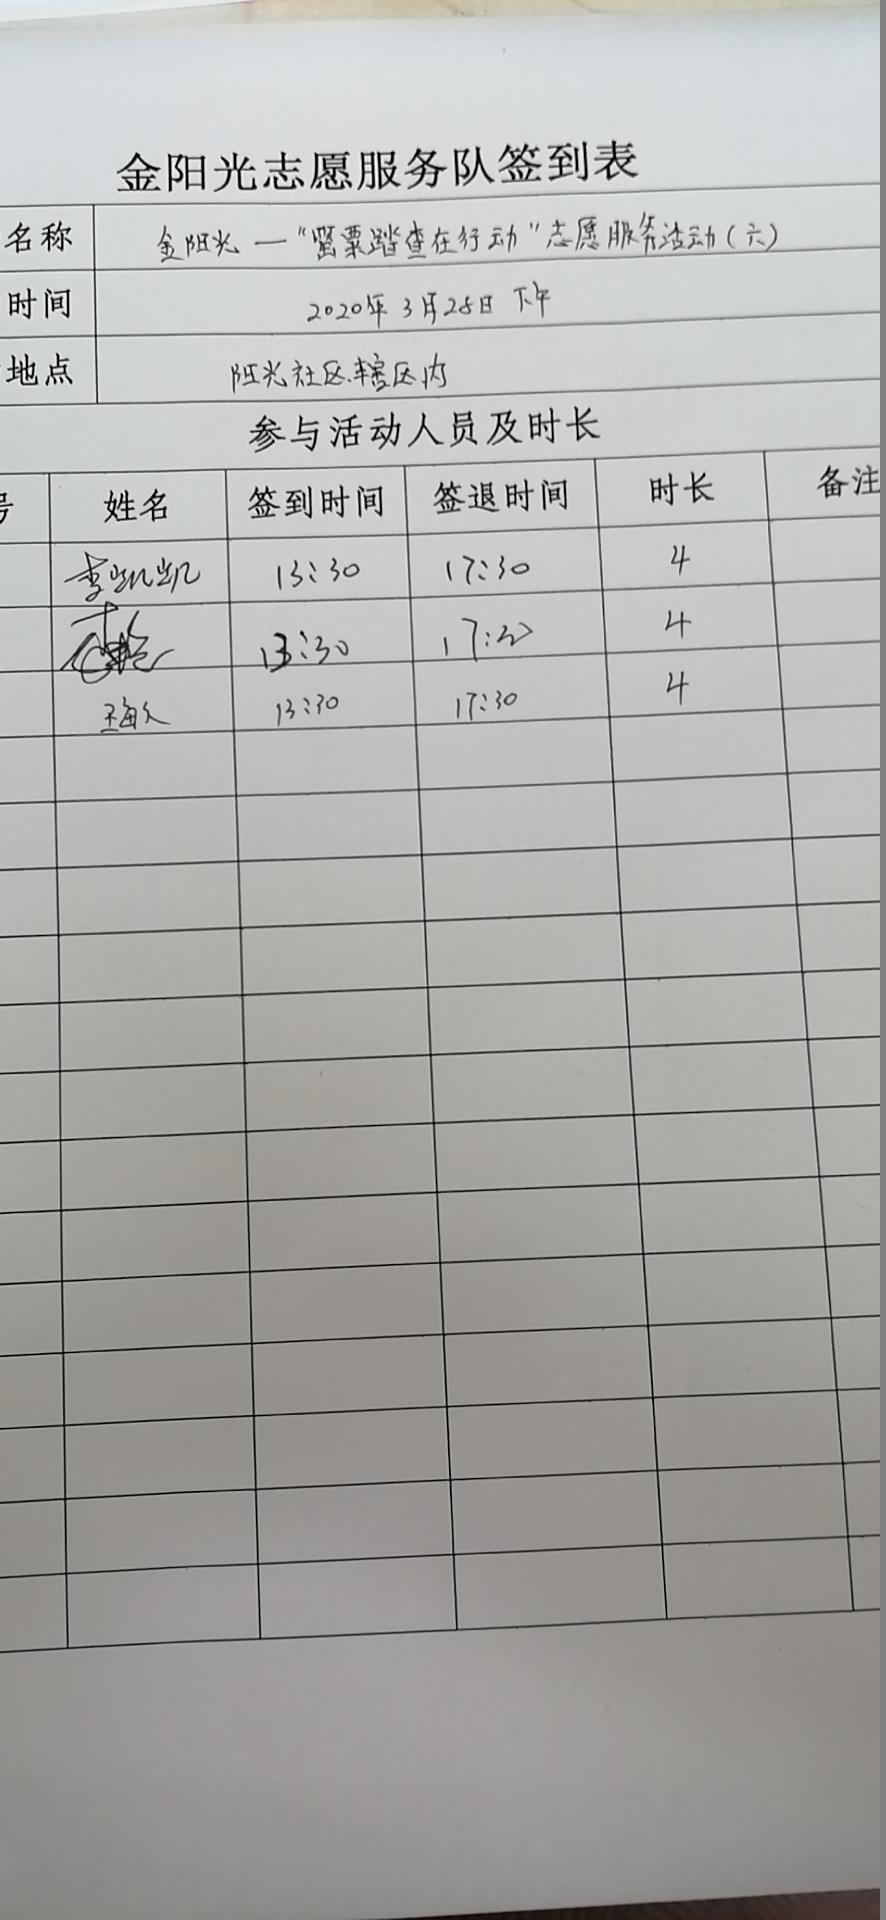 金阳光志愿服务队签到表
名称 金阳光—“罂粟踏查在行动”志愿服务活动（六）
时间 2020年3月28日 下午
地点 阳光社区辖区内
参与活动人员及时长
号 姓名 签到时间 签退时间 时长 备注
李凯凯 13:30 17:30 4
13:30 17:30 4
13:30 17:30 4